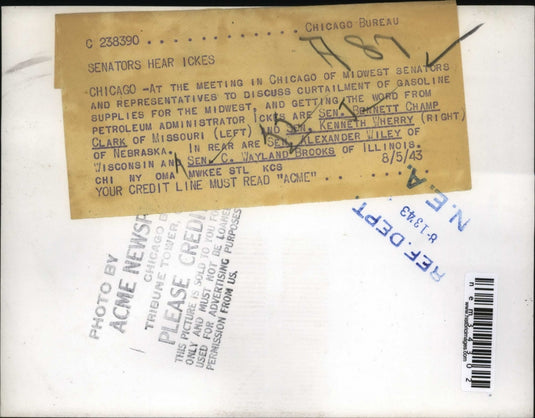 C 238390 . . . . . . . . . . . . . . . . CHICAGO BUREAU
SENATORS HEAR ICKES
CHICAGO -AT THE MEETING IN CHICAGO OF MIDWEST SENATORS
AND REPRESENTATIVES TO DISCUSS CURTAILMENT OF GASOLINE
SUPPLIES FOR THE MIDWEST, AND GETTING THE WORD FROM
PETROLEUM ADMINISTRATOR ICKES ARE SEN. BENNETT CHAMP
CLARK OF MISSOURI (LEFT) AND SEN. KENNETH WHERRY (RIGHT)
OF NEBRASKA. IN REAR ARE SEN. ALEXANDER WILEY OF
WISCONSIN AND SEN. C. WAYLAND BROOKS OF ILLINOIS.
CHI NY OMA MWKEE STL KCS 8/5/43
YOUR CREDIT LINE MUST READ "ACME"
A 87
REF. DEPT.
8-13-43
N. E. A.
PHOTO BY
ACME NEWSP
CHICAGO B
TRIBUNE TOWER,
PLEASE CREDIT
THIS PICTURE IS SOLD TO YOU FO
ONLY AND MUST NOT BE LOANE
USED FOR ADVERTISING PURPOSES
PERMISSION FROM US.
nem34302